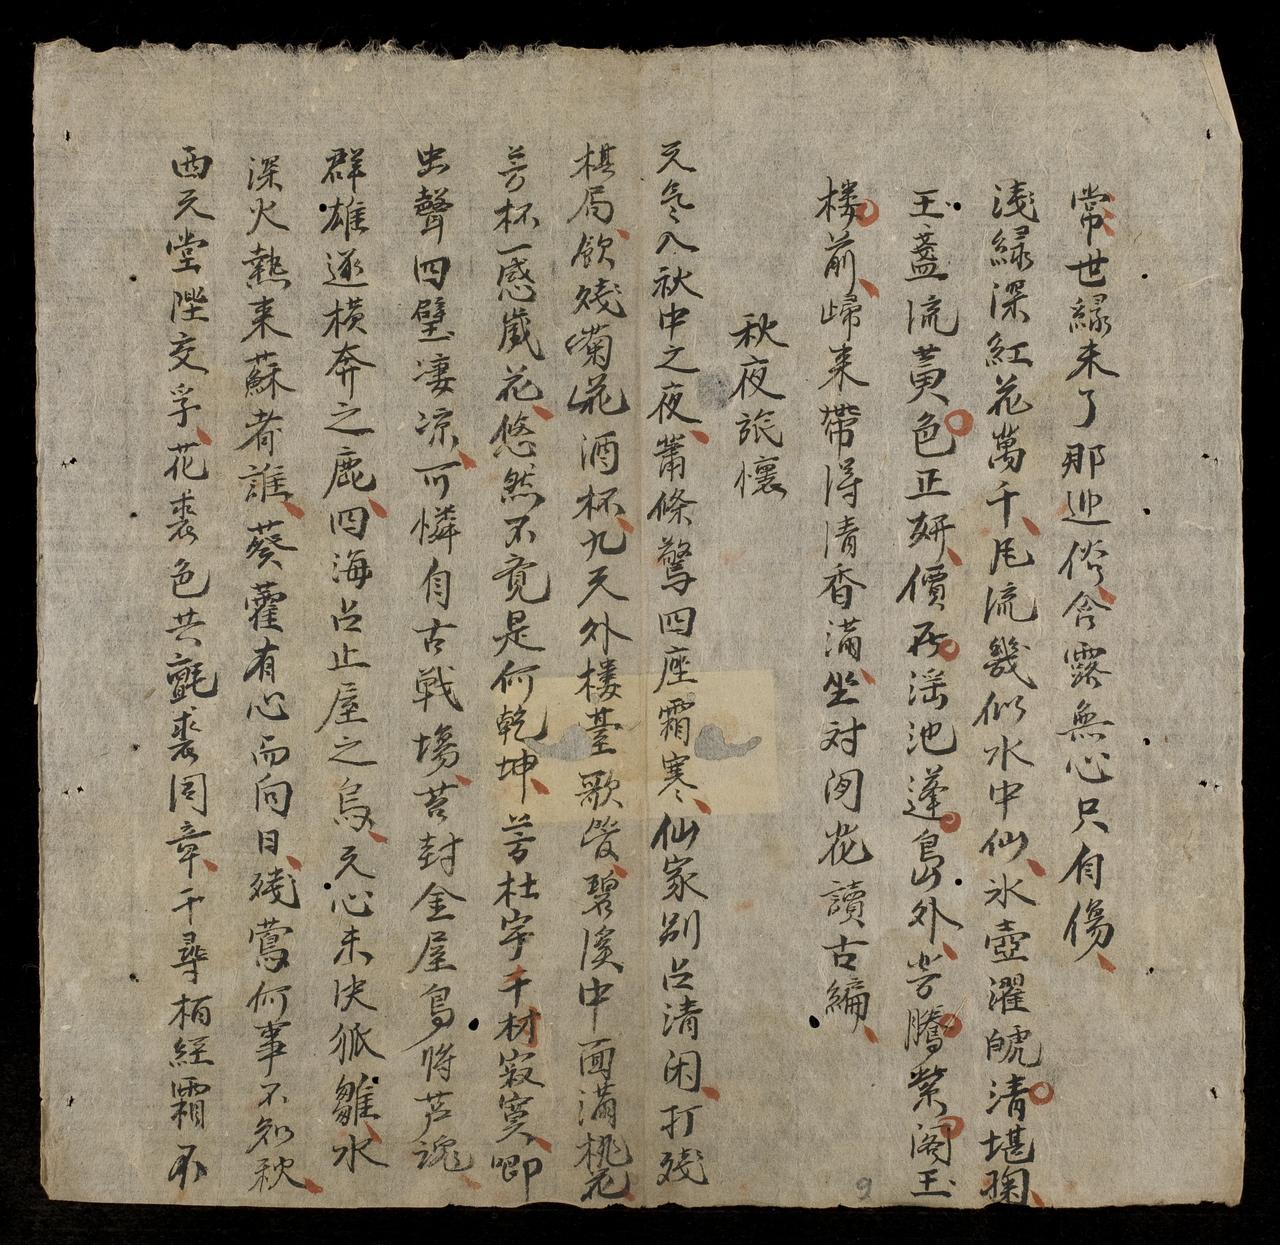 常世緣未了那迎俗含露無心只自傷
淺緑深紅花萬千凡流幾似水中仙氷壺濯魄清堪掬
玉盞流黄色正姸價召滛池蓬島外芳騰紫阁玉
楼前歸来帶得清香滿坐对闲花讀古編
秋夜旅懷
元氣入秋中之夜蕭條驚四座霜寒仙家别占清闲打殘
棋局飲殘菊花酒杯九天外楼臺歌管碧溪中面滿桃花
芳杯一感嵗花悠然不竟是何乾坤芳杜字千材寂寞唧
虫聲四壁凄凉可憐自古戰塲苔封金屋鳥啼芦魂
群雄逐横奔之鹿四海占止屋之烏天心未决狐雛水
深火熱来蘇者誰葵藿有心而向日殘鶯何事不知秋
西天堂陛交孚花裘色共氈裘同章千尋栢經霜不
9